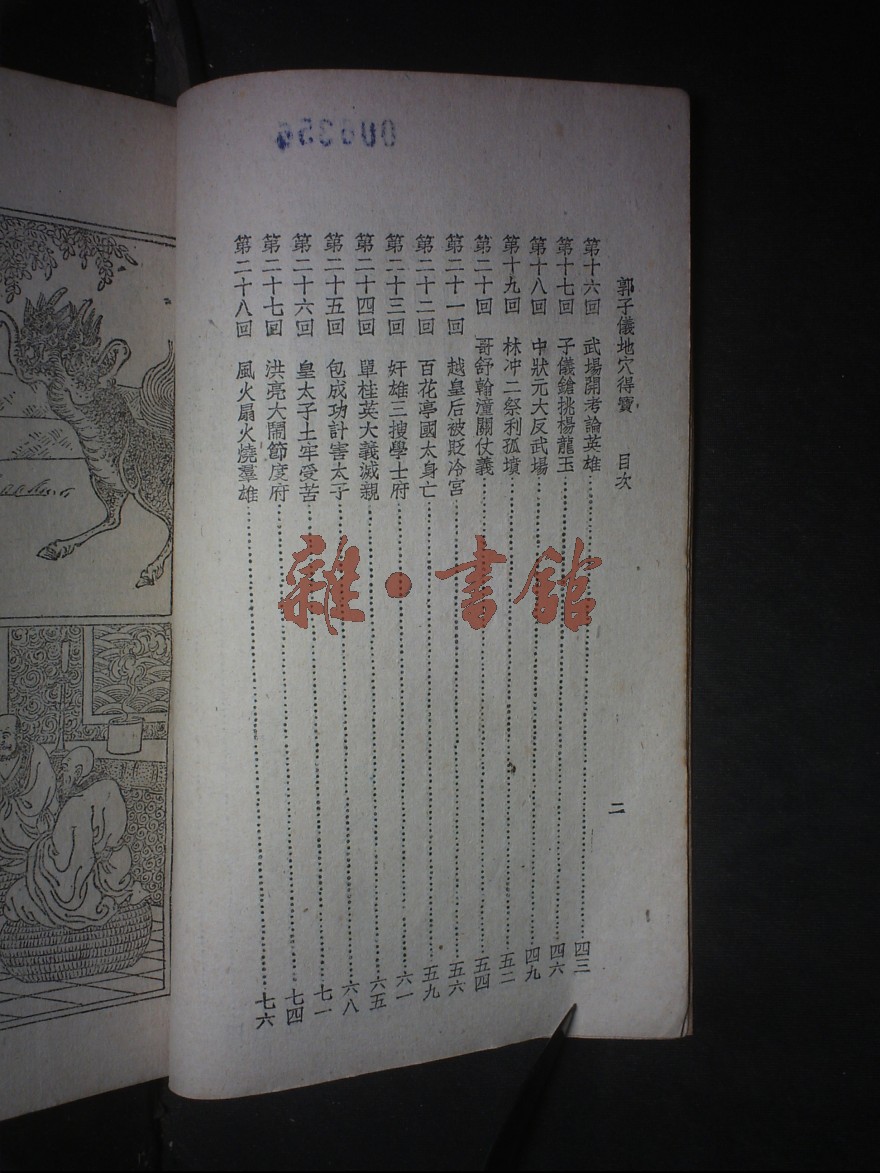 郭子儀地穴得寶 目次 二
第十六回 武場開考論英雄 四三
第十七回 子儀鎗挑楊龍玉 四六
第十八回 中狀元大反武場 四九
第十九回 林冲二祭利孤墳 五二
第二十回 哥舒翰潼關仗義 五四
第二十一回 越皇后被貶冷宮 五六
第二十二回 百花亭國太身亡 五九
第二十三回 奸雄三搜學士府 六一
第二十四回 單桂英大義滅親 六五
第二十五回 包成功計害太子 六八
第二十六回 皇太子土牢受苦 七一
第二十七回 洪亮大鬧節度府 七四
第二十八回 風火扇火燒羣雄 七六
雜·書館